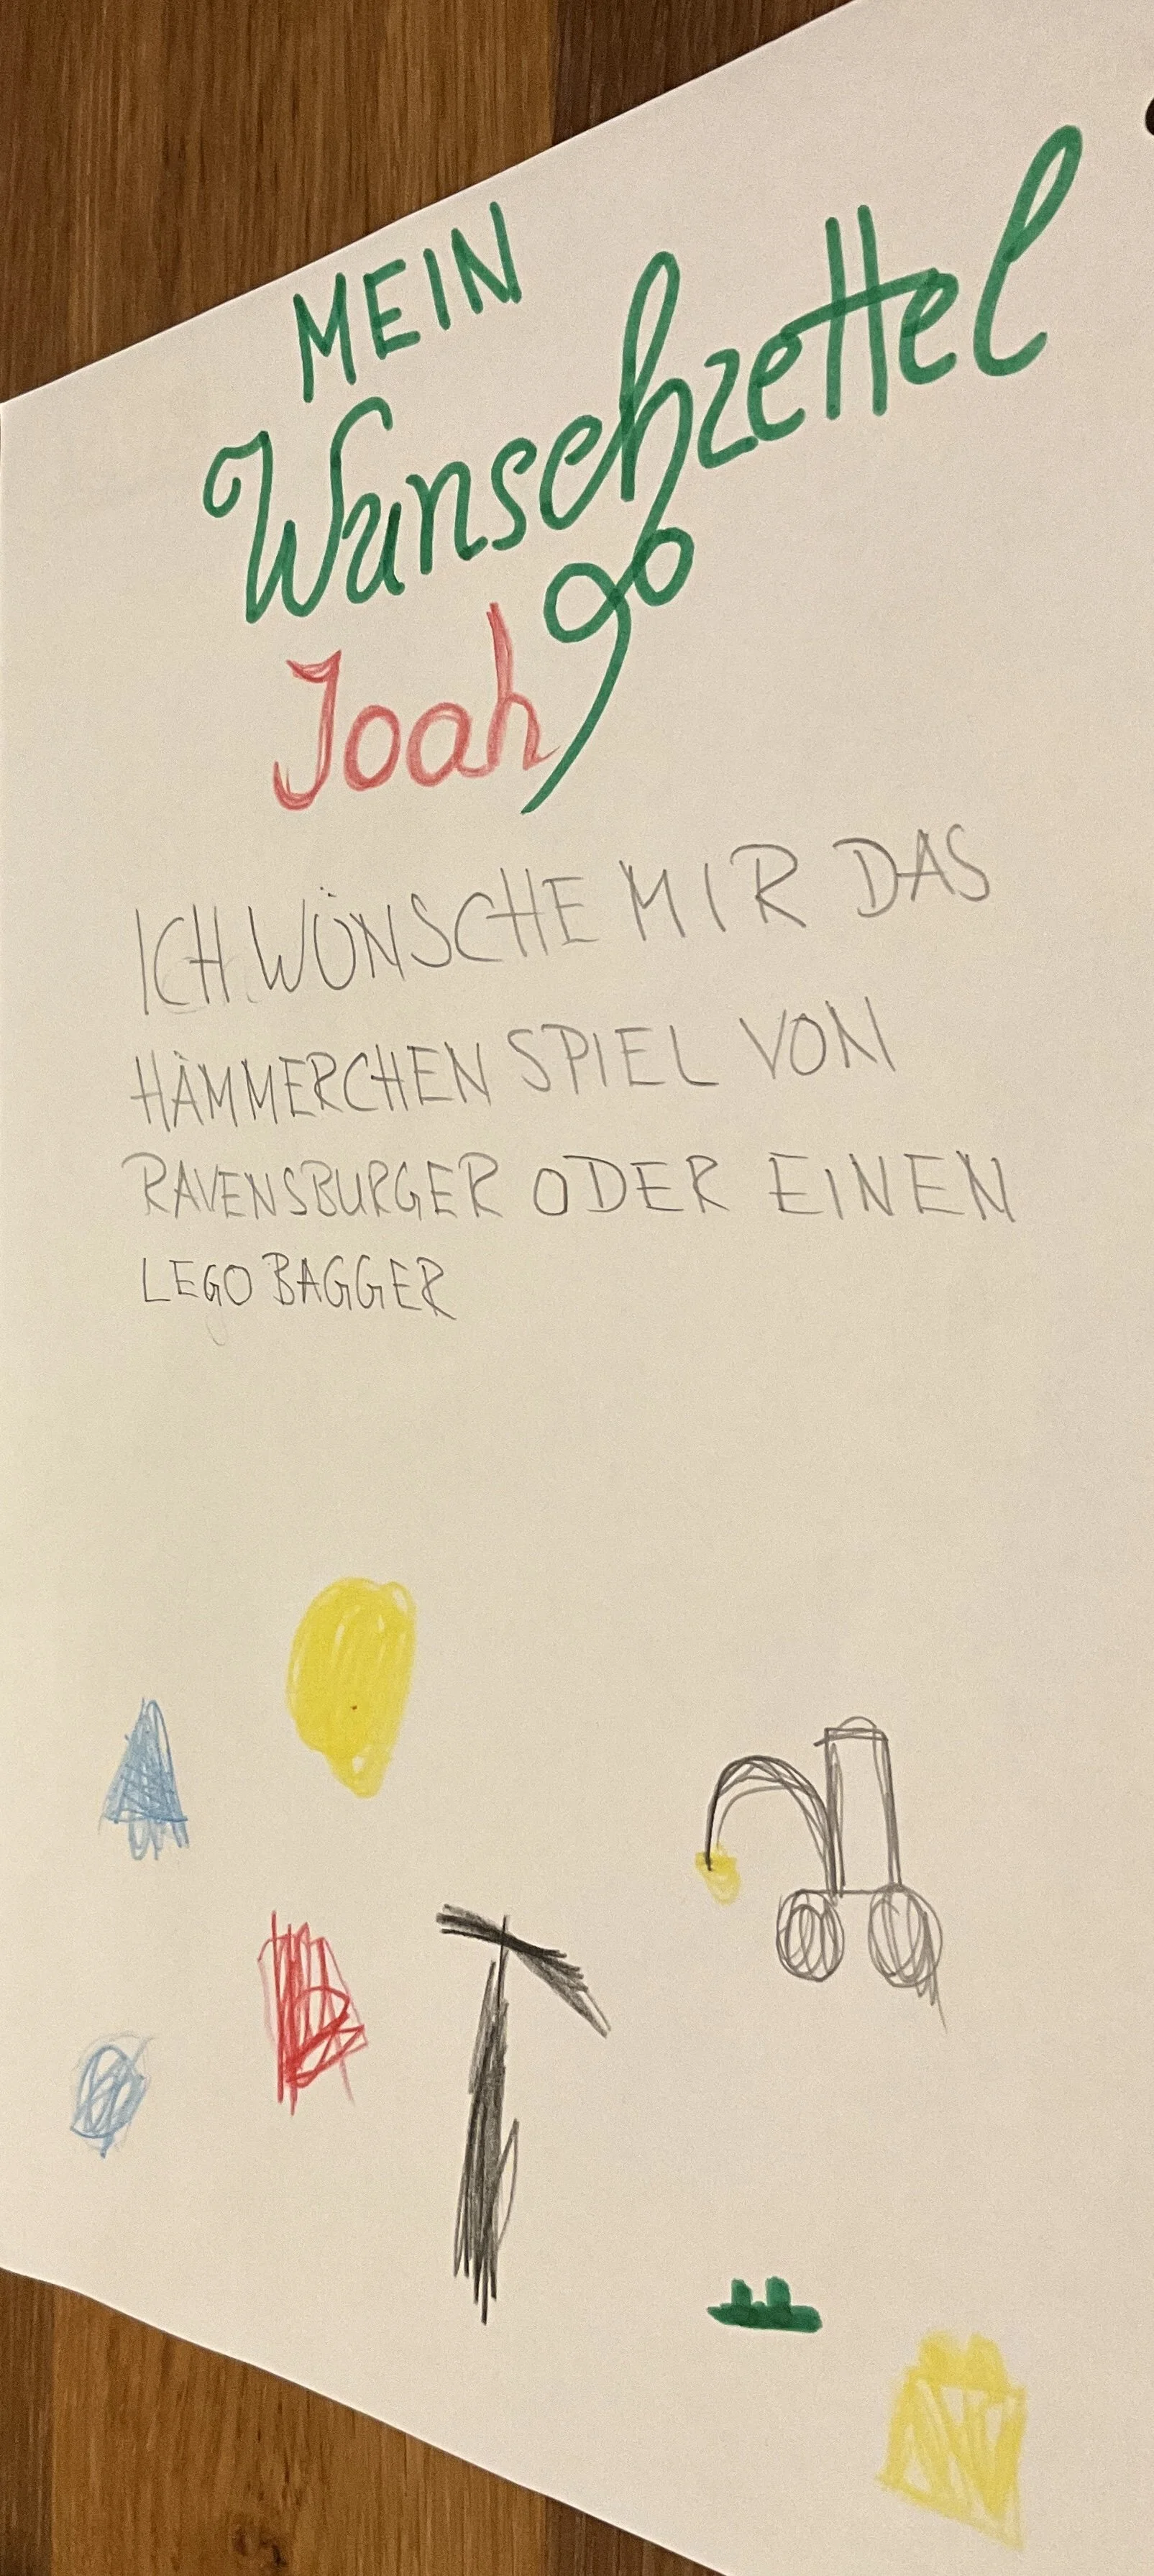 MEIN
Wunschzettel
Joah
ICH WÜNSCHE MIR DAS
HÄMMERCHEN SPIEL VON
RAVENSBURGER ODER EINEN
LEGO BAGGER